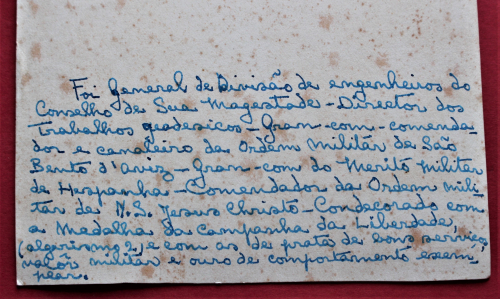 Foi General de Divisão de engenheiros do
Conselho de Sua Magestade - Director dos
trabalhos geodesicos - Gran-com-comenda
dor e cavaleiro da Ordem militar de São
Bento d'aviz - Gran-com do Merito Militar
de Hespanha - Comendador da Ordem mili-
tar de N. S. Jesus Christo - Condecorado com
a Medalha da Campanha da Liberdade
(algarismo 2) e com as de prata de bons serviços
valôr militar e ouro de comportamento exem
plar.